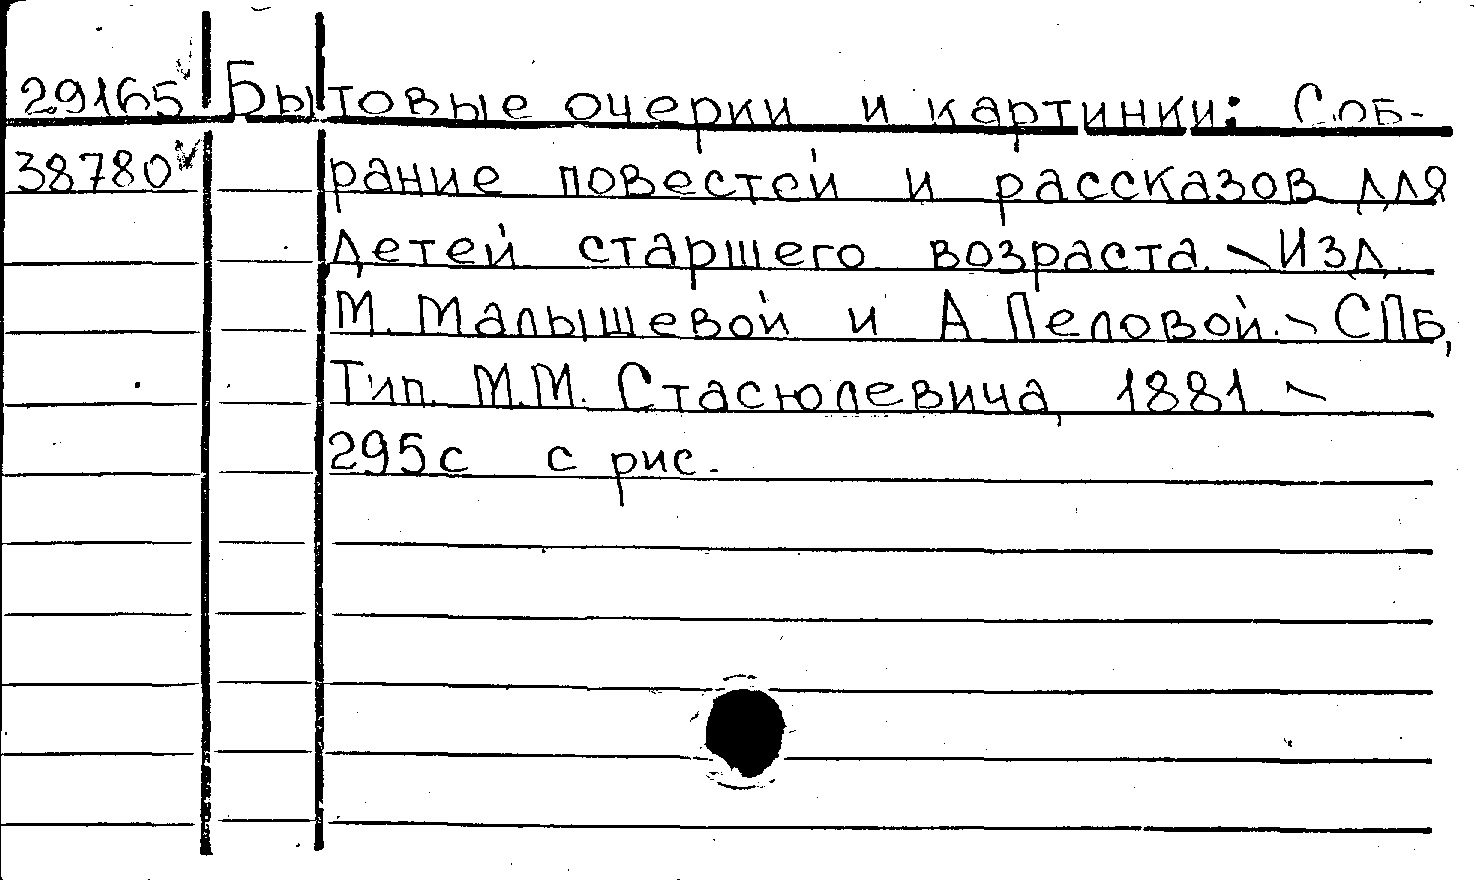 29165 Бытовые очерки и картинки: Соб-
38780 рание повестей и рассказов для
детей старшего возраста. - Изд
М. Малышевой и А Пеловой. - СПб,
Тип. М.М. Стасюлевича, 1881 -
295с с рис.